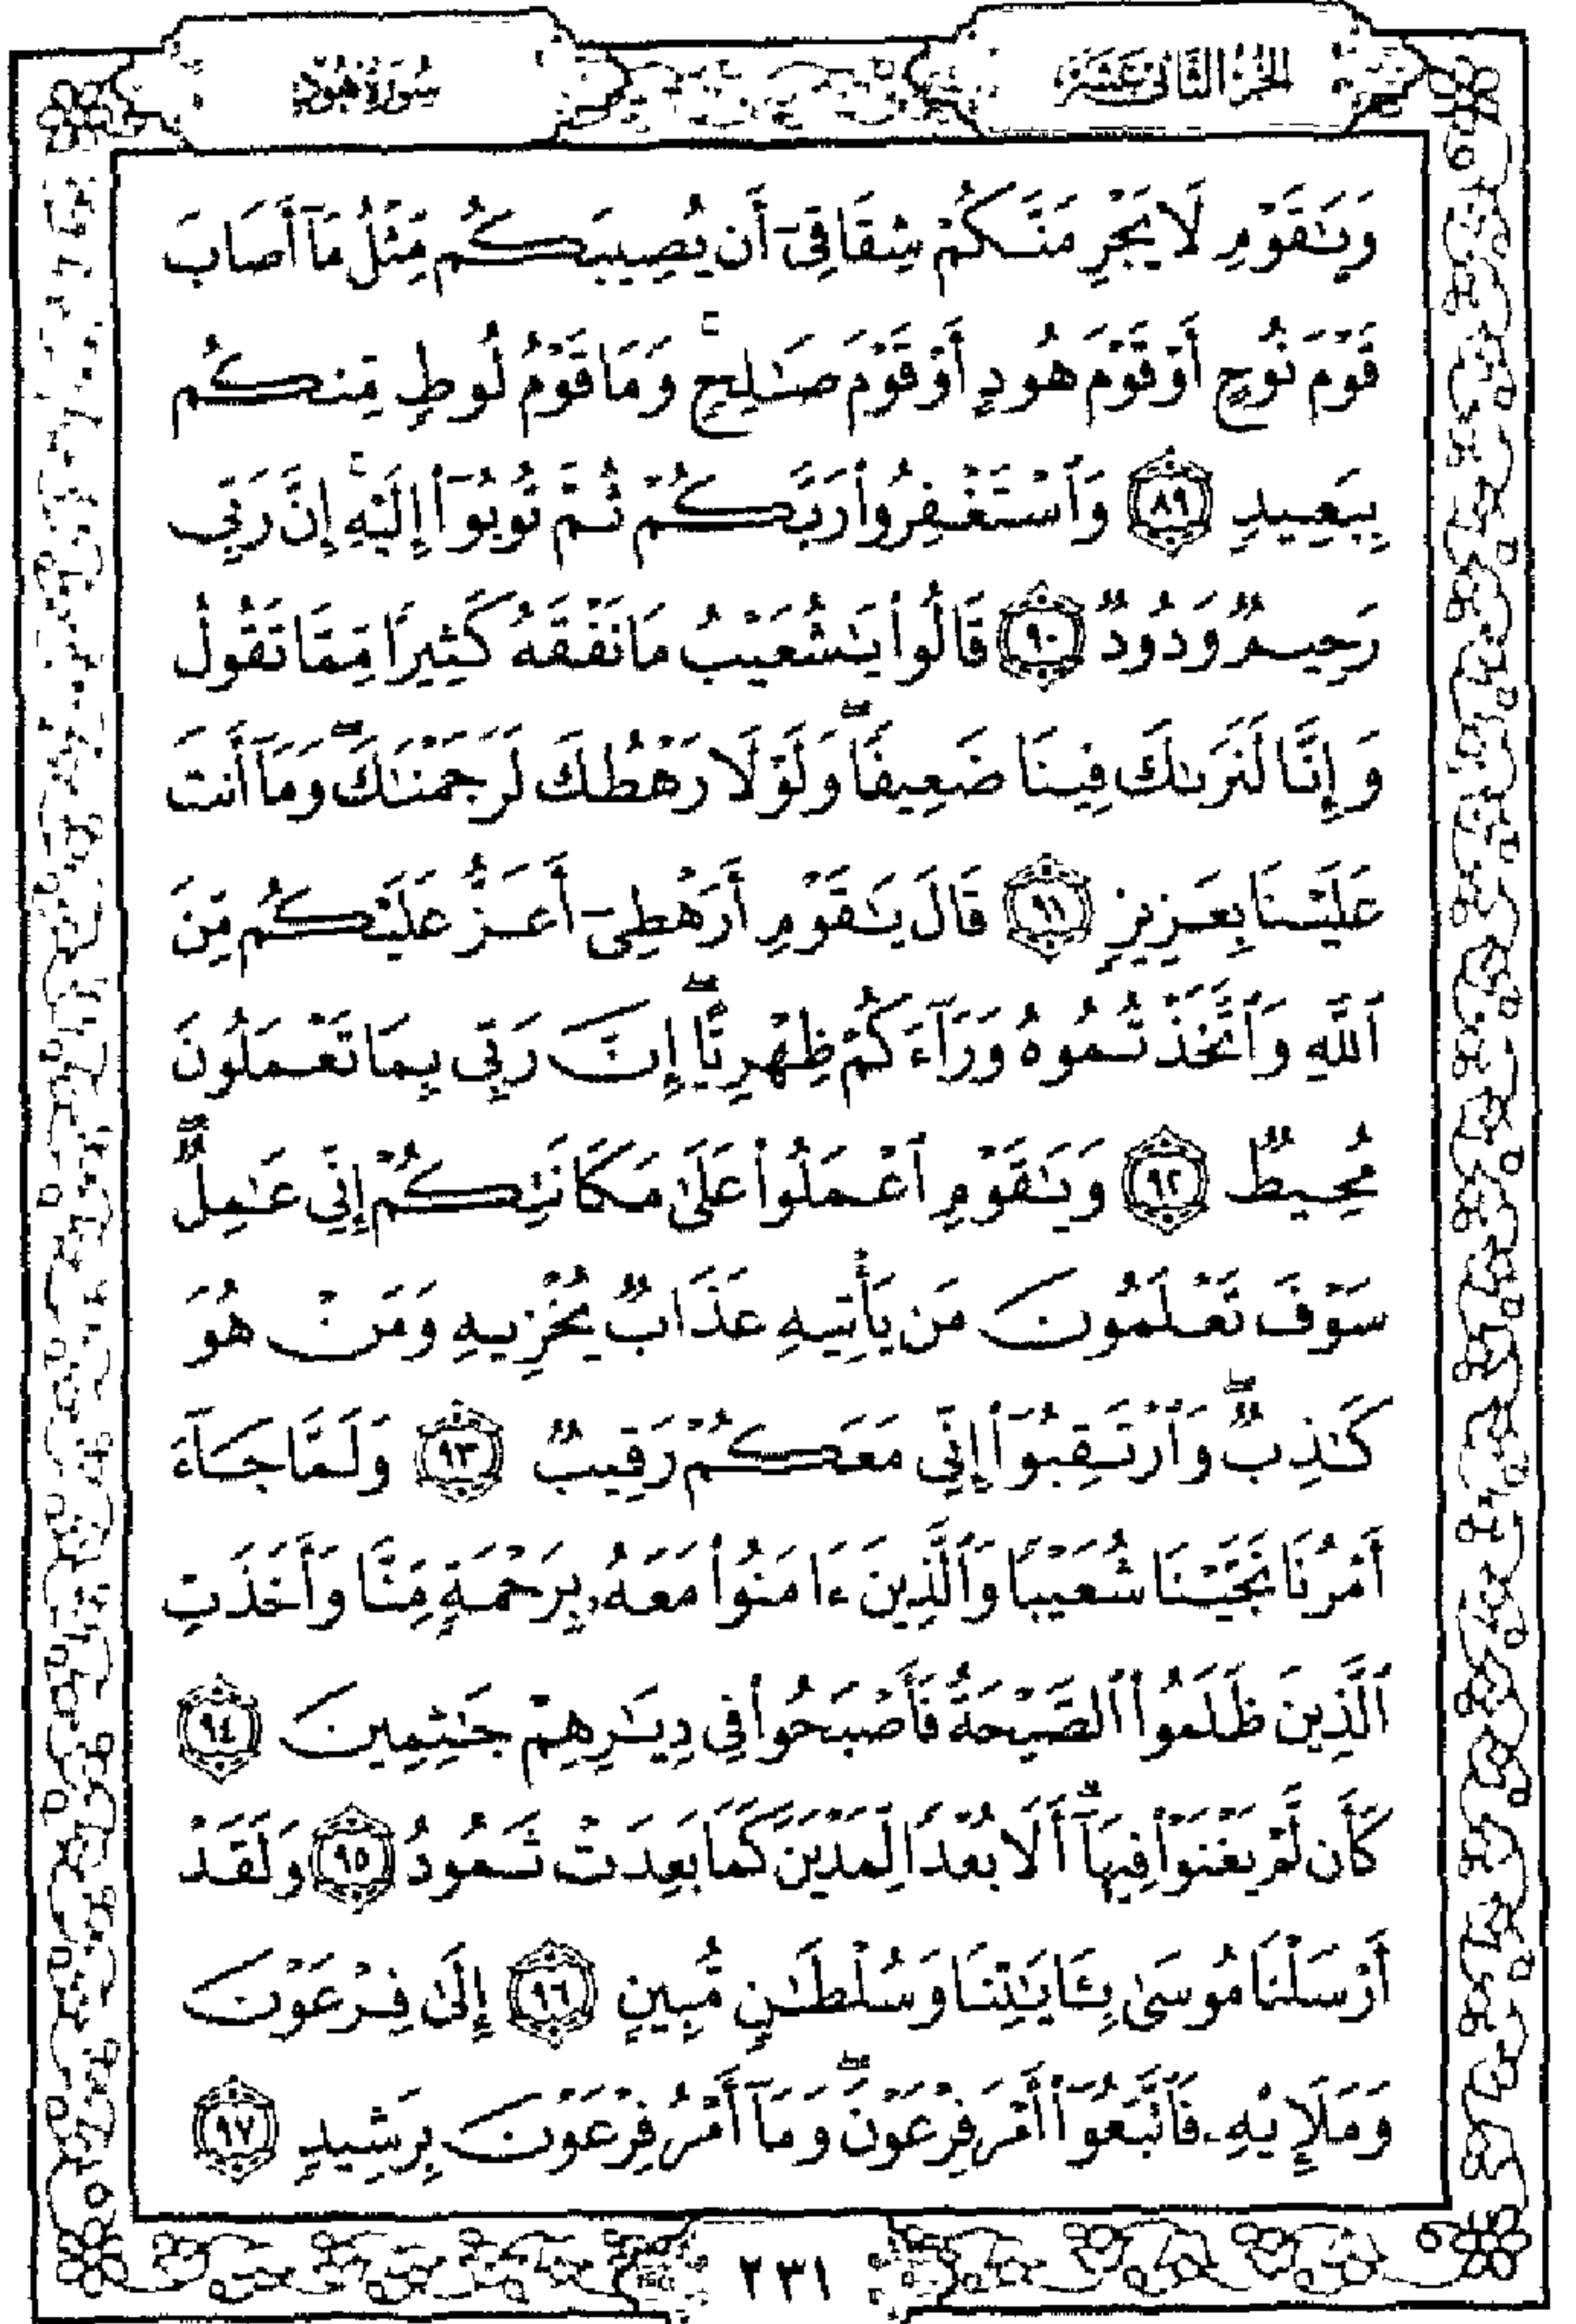 الجزء الثاني عشر
سورة هود
وَيَٰقَوْمِ لَا يَجْرِمَنَّكُمْ شِقَاقِىٓ أَن يُصِيبَكُم مِّثْلُ مَآ أَصَابَ
قَوْمَ نُوحٍ أَوْ قَوْمَ هُودٍ أَوْ قَوْمَ صَٰلِحٍۚ وَمَا قَوْمُ لُوطٍ مِّنكُم
بِبَعِيدٍ ٨٩ وَٱسْتَغْفِرُوا۟ رَبَّكُمْ ثُمَّ تُوبُوٓا۟ إِلَيْهِۚ إِنَّ رَبِّى
رَحِيمٌ وَدُودٌ ٩٠ قَالُوا۟ يَٰشُعَيْبُ مَا نَفْقَهُ كَثِيرًا مِّمَّا تَقُولُ
وَإِنَّا لَنَرَىٰكَ فِينَا ضَعِيفًاۖ وَلَوْلَا رَهْطُكَ لَرَجَمْنَٰكَۖ وَمَآ أَنتَ
عَلَيْنَا بِعَزِيزٍ ٩١ قَالَ يَٰقَوْمِ أَرَهْطِىٓ أَعَزُّ عَلَيْكُم مِّنَ
ٱللَّهِ وَٱتَّخَذْتُمُوهُ وَرَآءَكُمْ ظِهْرِيًّاۖ إِنَّ رَبِّى بِمَا تَعْمَلُونَ
مُحِيطٌ ٩٢ وَيَٰقَوْمِ ٱعْمَلُوا۟ عَلَىٰ مَكَانَتِكُمْ إِنِّى عَٰمِلٌۖ
سَوْفَ تَعْلَمُونَ مَن يَأْتِيهِ عَذَابٌ يُخْزِيهِ وَمَنْ هُوَ
كَٰذِبٌۖ وَٱرْتَقِبُوٓا۟ إِنِّى مَعَكُمْ رَقِيبٌ ٩٣ وَلَمَّا جَآءَ
أَمْرُنَا نَجَّيْنَا شُعَيْبًا وَٱلَّذِينَ ءَامَنُوا۟ مَعَهُۥ بِرَحْمَةٍ مِّنَّا وَأَخَذَتِ
ٱلَّذِينَ ظَلَمُوا۟ ٱلصَّيْحَةُ فَأَصْبَحُوا۟ فِى دِيَٰرِهِمْ جَٰثِمِينَ ٩٤
كَأَن لَّمْ يَغْنَوْا۟ فِيهَآۗ أَلَا بُعْدًا لِّمَدْيَنَ كَمَا بَعِدَتْ ثَمُودُ ٩٥ وَلَقَدْ
أَرْسَلْنَا مُوسَىٰ بِـَٔايَٰتِنَا وَسُلْطَٰنٍ مُّبِينٍ ٩٦ إِلَىٰ فِرْعَوْنَ
وَمَلَإِي۟هِۦ فَٱتَّبَعُوٓا۟ أَمْرَ فِرْعَوْنَۖ وَمَآ أَمْرُ فِرْعَوْنَ بِرَشِيدٍ ٩٧
٢٣١